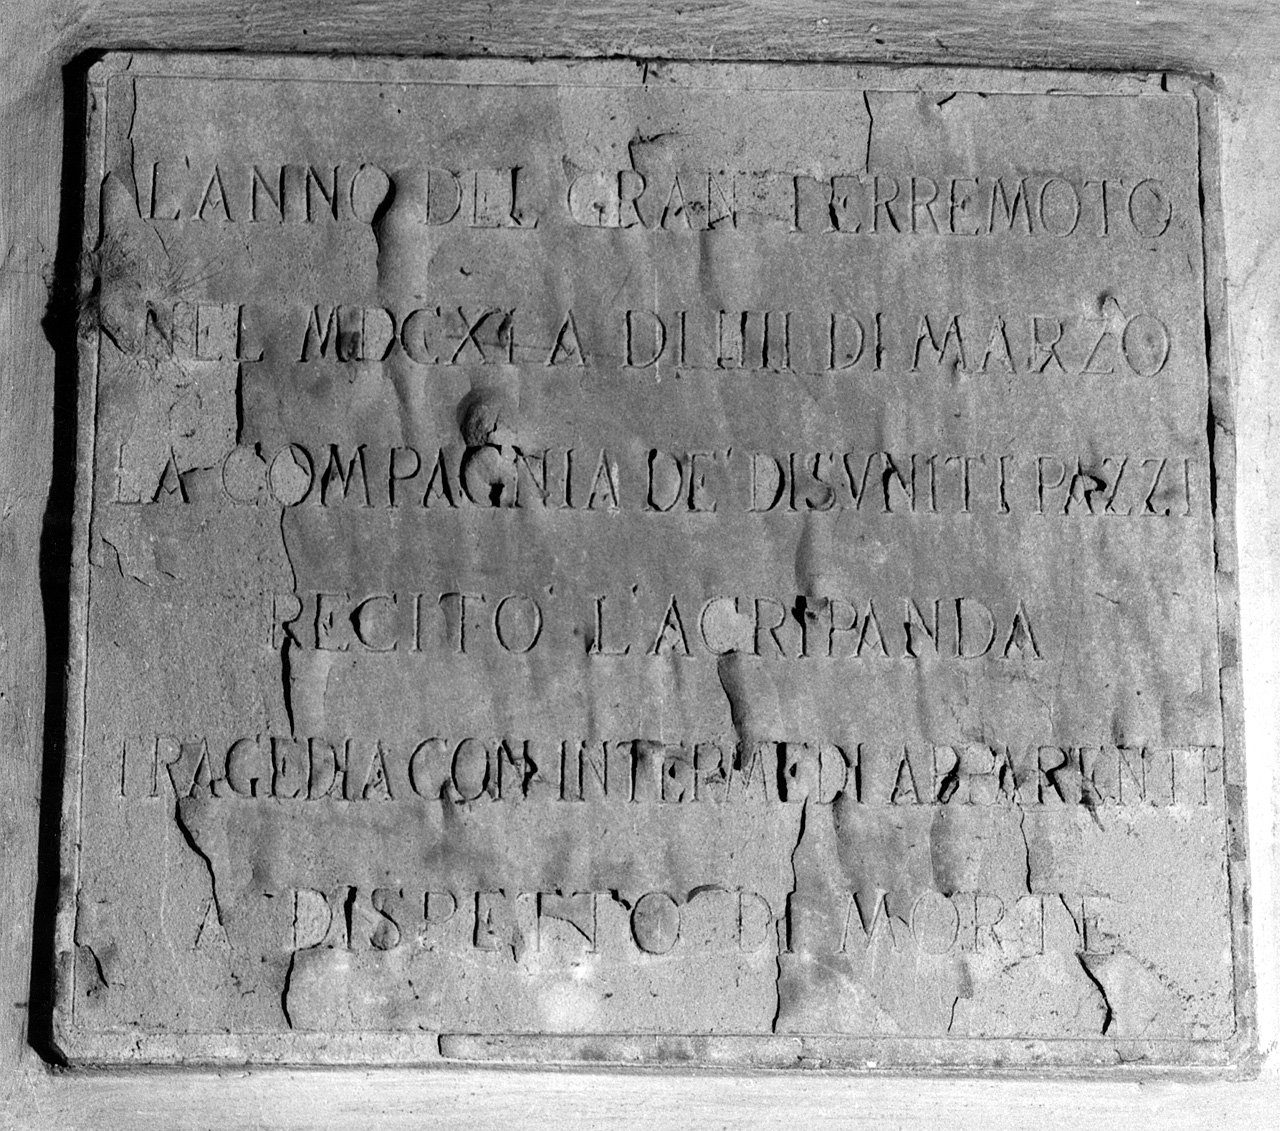 L'ANNO DEL GRAN TERREMOTO
NEL MDCXI A DI IIII DI MARZO
LA COMPAGNIA DE' DISVNITI PAZZI
RECITO' L'ACRIPANDA
TRAGEDIA CON INTERMEDI APPARENTI
A DISPETTO DI MORTE